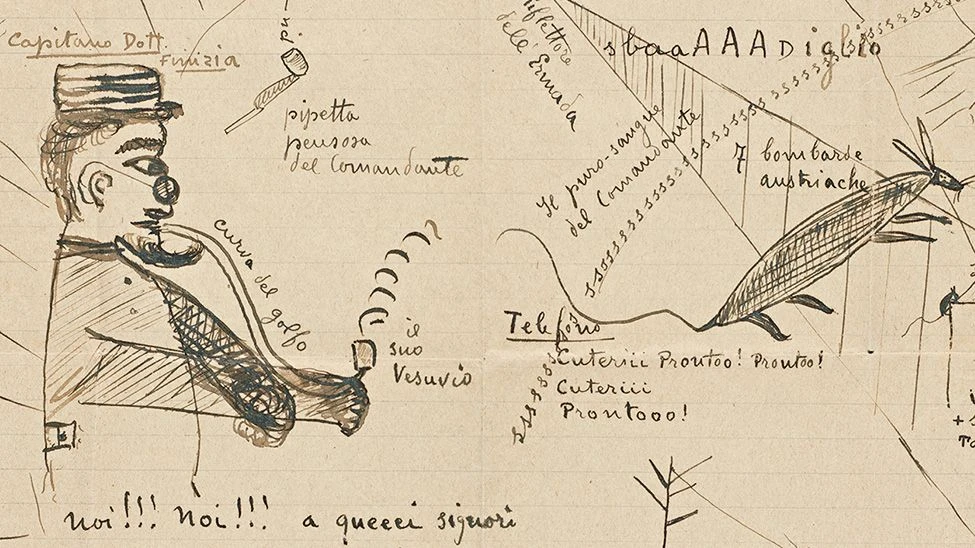 Capitano Dott.
Funizia
pipetta
pensosa
del Comandante
curva del golfo
il
suo
Vesuvio
noi!!! Noi!!! a queeci signori
Riflettore
dell'Ermada
sbaaAAADiglio
Il puro-sangue
del Comandante
7 bombarde
austriache
Telefono
Cuteriii Prontoo! Prontoo!
Cuteriii
Prontooo!